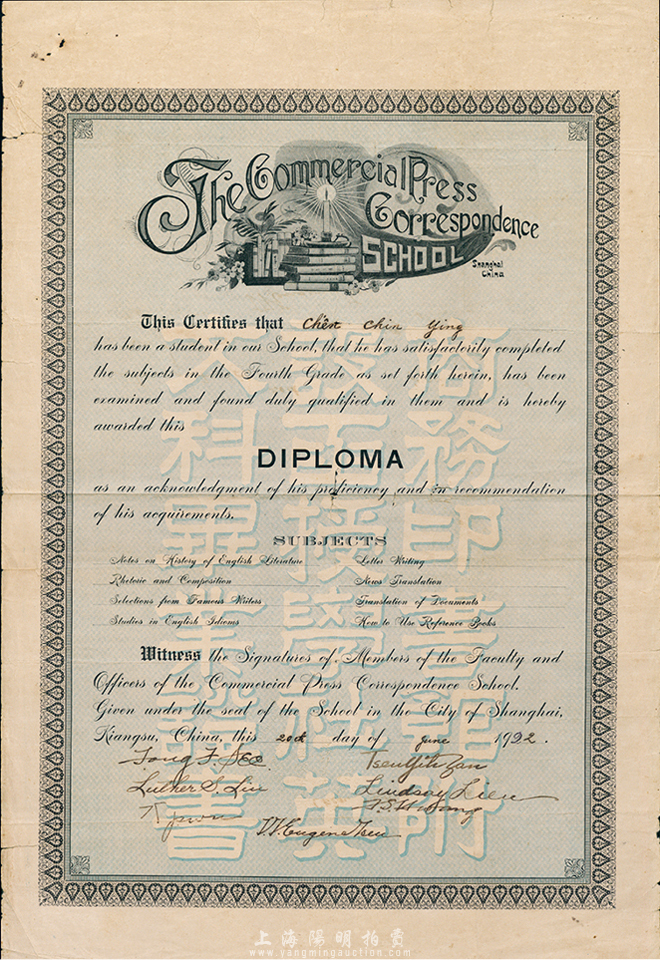 The Commercial Press
Correspondence
SCHOOL
Shanghai
China
This Certifies that Chên Chin Ying
has been a student in our School, that he has satisfactorily completed
the subjects in the Fourth Grade as set forth herein, has been
examined and found duly qualified in them and is hereby
awarded this
DIPLOMA
as an acknowledgment of his proficiency and in recommendation
of his acquirements.
SUBJECTS
Notes on History of English Literature
Rhetoric and Composition
Selections from Famous Writers
Studies in English Idioms
Letter Writing
News Translation
Translation of Documents
How to Use Reference Books
Witness the Signatures of Members of the Faculty and
Officers of the Commercial Press Correspondence School.
Given under the seal of the School in the City of Shanghai,
Kiangsu, China, this 20th day of June 1922.
Fong F. Sec
Luther S. Liu
Lindsay Lieu
W. Eugene Tseu
商務印書館附
設函授學社英
文科畢業證書
上海陽明拍賣
www.yangmingauction.com